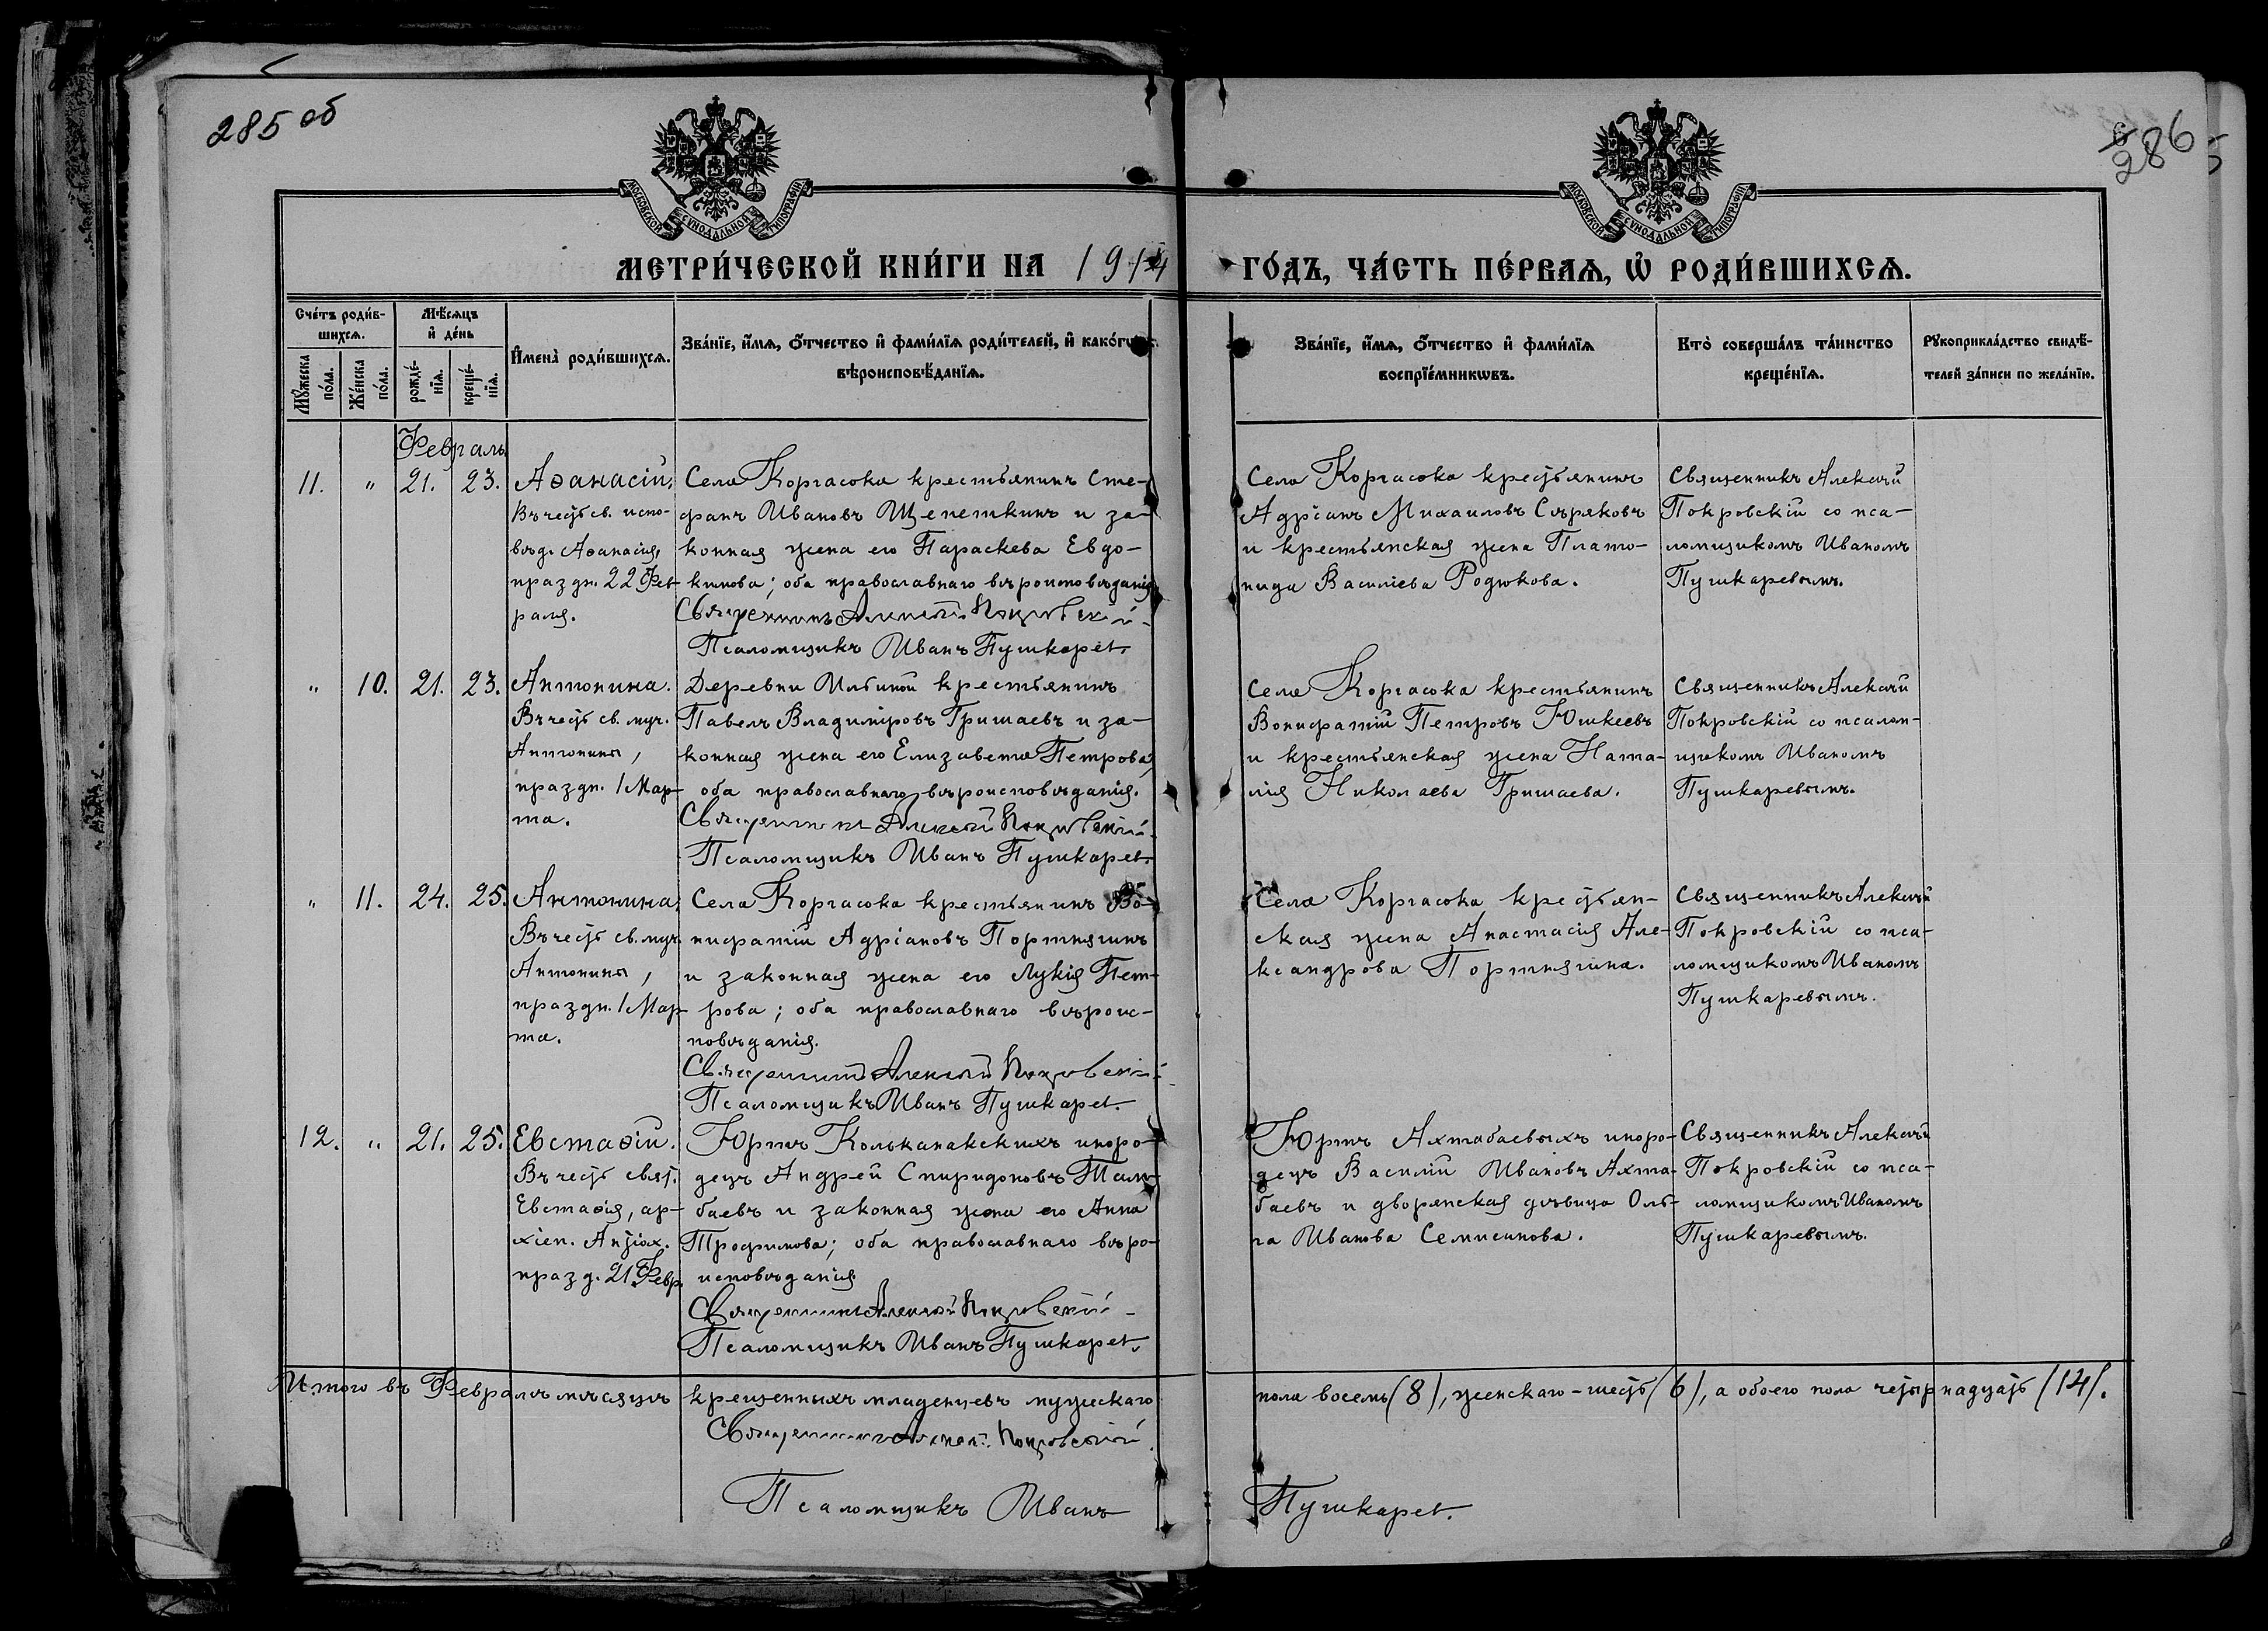 285 об
286
МОСКОВСКОЙ СУНОДАЛЬНОЙ ТИПОГРАФІИ
МОСКОВСКОЙ СУНОДАЛЬНОЙ ТИПОГРАФІИ
МЕТРИ́ЧЕСКОЙ КНИ́ГИ НА 1914 ГО́ДЪ, ЧА́СТЬ ПЕ́РВАѦ, Ѡ РОДИ́ВШИХСѦ.
Сче́тъ роди́в-
шихсѧ.
Мѣ́сѧцъ
и҆ де́нь
Мꙋ́жеска
по́ла.
Же́нска
по́ла.
рожде́-
нїѧ.
креще́-
нїѧ.
И҆мена̀ роди́вшихсѧ.
Зва́нїе, и҆́мѧ, ѻ҆́тчество и҆ фами́лїѧ роди́телей, и҆ како́гѡ
вѣроисповѣ́данїѧ.
Зва́нїе, и҆́мѧ, ѻ҆́тчество и҆ фами́лїѧ
воспрїе́мникѡвъ.
Кто̀ соверша́лъ та́инство
креще́нїѧ.
Рꙋкоприкла́дство свидѣ́-
телей за́писи по жела́нїю.
Февраль
11. " 21. 23.
Аѳанасій.
Въ честь св. испо-
вѣд. Аѳанасія,
праздн. 22 Фев-
раля.
Села Каргасока крестьянинъ Сте-
фанъ Ивановъ Щепеткинъ и за-
конная жена его Параскева Евдо-
кимова; оба православнаго вѣроисповѣданія
Священникъ Алексій Покровскій
Псаломщикъ Иванъ Пушкарев
Села Каргасока крестьянинъ
Адріанъ Михаиловъ Сѣряковъ
и крестьянская жена Плато-
нида Василіева Родюкова.
Священникъ Алексій
Покровскій со пса-
ломщикомъ Иваномъ
Пушкаревымъ.
" 10. 21. 23.
Антонина.
Въ честь св. муч.
Антонины,
праздн. 1 Мар-
та.
Деревни Ильиной крестьянинъ
Павелъ Владиміровъ Гришаевъ и за-
конная жена его Елизавета Петрова,
оба православнаго вѣроисповѣданія.
Священникъ Алексій Покровскій
Псаломщикъ Иванъ Пушкарев
Села Каргасока крестьянинъ
Вонифатій Петровъ Юшкеевъ
и крестьянская жена Ната-
лія Николаева Гришаева.
Священникъ Алексій
Покровскій со псалом-
щикомъ Иваномъ
Пушкаревымъ.
" 11. 24. 25.
Антонина,
Въ честь св. муч.
Антонины,
праздн. 1 Мар-
та.
Села Каргасока крестьянинъ Во-
нифатій Адріановъ Портнягинъ
и законная жена его Лукія Пет-
рова; оба православнаго вѣроис-
повѣданія.
Священникъ Алексій Покровскій
Псаломщикъ Иванъ Пушкарев.
Села Каргасока крестьян-
ская жена Анастасія Але-
ксандрова Портнягина.
Священникъ Алексій
Покровскій со пса-
ломщикомъ Иваномъ
Пушкаревымъ.
12. " 21. 25.
Евстаѳій.
Въ честь свят.
Евстаѳія, ар-
хіеп. Антіох.
празд. 21 Февр.
Юртъ Кольканакскихъ иноро-
децъ Андрей Спиридоновъ Там-
баевъ и законная жена его Анна
Трофимова; оба православнаго вѣро-
исповѣданія
Священникъ Алексій Покровскій
Псаломщикъ Иванъ Пушкарев.
Юртъ Ахтабаевыхъ иноро-
децъ Василій Ивановъ Ахта-
баевъ и дворянская дѣвица Оль-
га Иванова Семисинова.
Священникъ Алексій
Покровскій со пса-
ломщикомъ Иваномъ
Пушкаревымъ.
Итого въ Февралѣ мѣсяцѣ крещенныхъ младенцевъ мужескаго пола восемь (8), женскаго - шесть (6), а обоего пола четырнадцать (14).
Священникъ Алексій Покровскій
Псаломщикъ Иванъ Пушкарев.